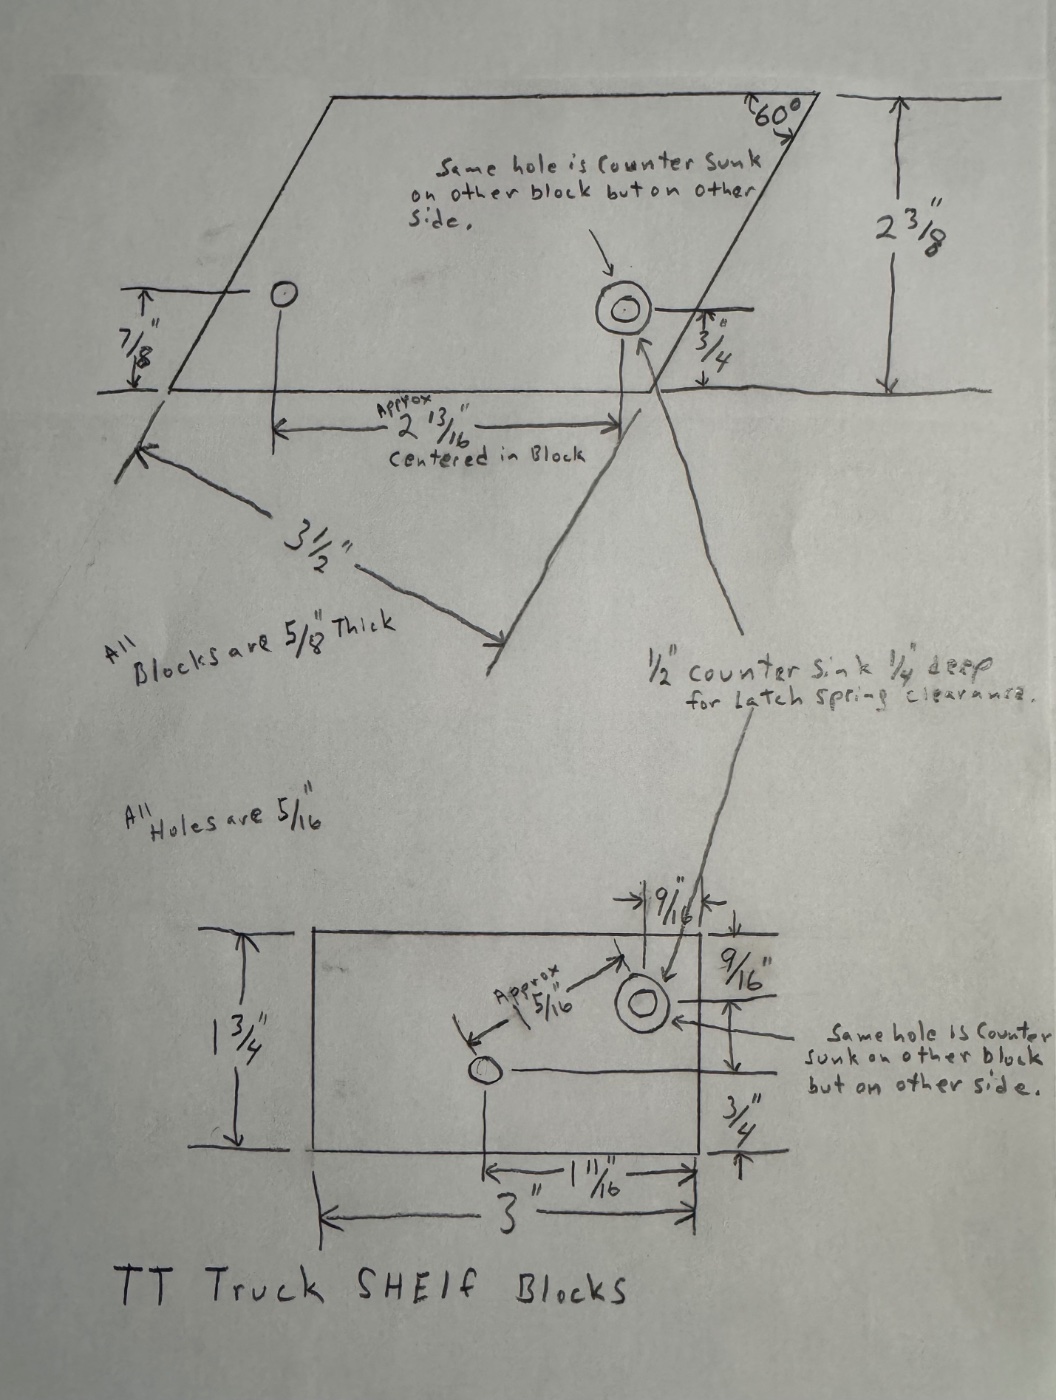 60°
Same hole is Counter Sunk
on other block but on other
side.
2 3/8"
7/8"
3/4"
Approx
2 13/16"
Centered in Block
3 1/2"
All Blocks are 5/8" Thick
1/2" counter sink 1/4" deep
for Latch spring clearance.
All Holes are 5/16"
9/16"
9/16"
Approx
1 5/16"
1 3/4"
Same hole is Counter
sunk on other block
but on other side.
3/4"
1 11/16"
3"
TT Truck SHElf Blocks